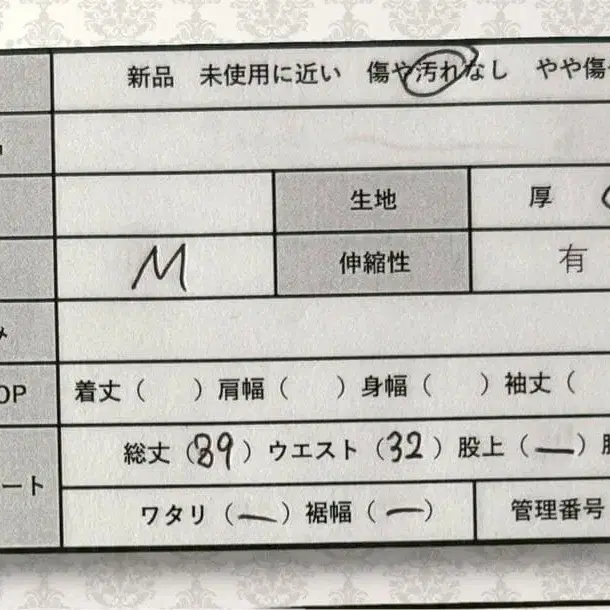 新品 未使用に近い 傷や汚れなし やや傷
生地 厚
M 伸縮性 有
み
OP 着丈( )肩幅( )身幅( )袖丈(
総丈(89)ウエスト(32)股上(—)股
ート
ワタリ(—)裾幅(—) 管理番号